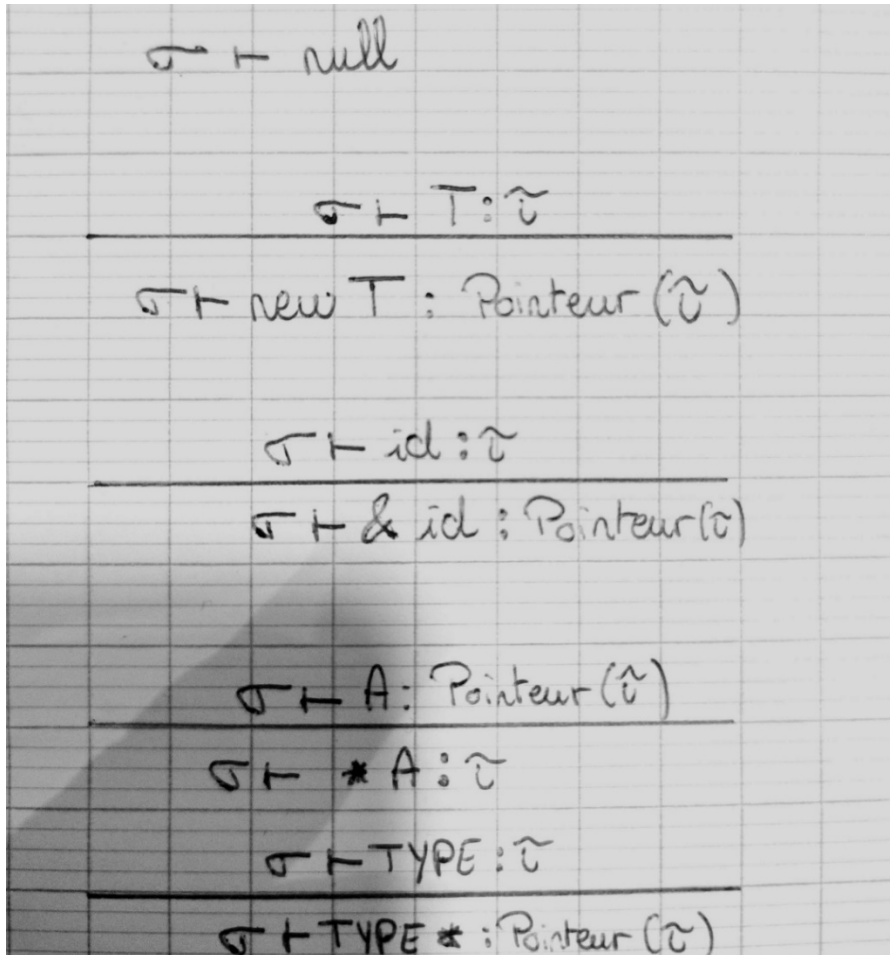 σ ⊢ null
σ ⊢ T : τ
σ ⊢ new T : Pointeur (τ)
σ ⊢ id : τ
σ ⊢ & id : Pointeur(τ)
σ ⊢ A : Pointeur (τ)
σ ⊢ * A : τ
σ ⊢ TYPE : τ
σ ⊢ TYPE * : Pointeur (τ)